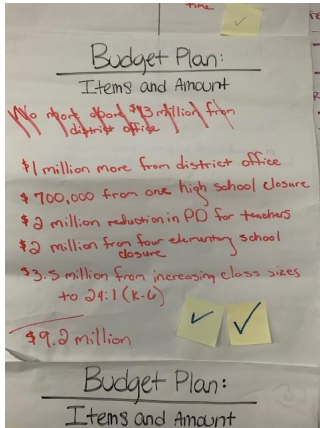 time
Budget Plan:
Items and Amount
No more above $13 million from
district office
$1 million more from district office
$700,000 from one high school closure
$2 million reduction in PD for teachers
$2 million from four elementary school
closure
$3.5 million from increasing class sizes
to 24:1 (K-6)
$9.2 million
Budget Plan:
Items and Amount